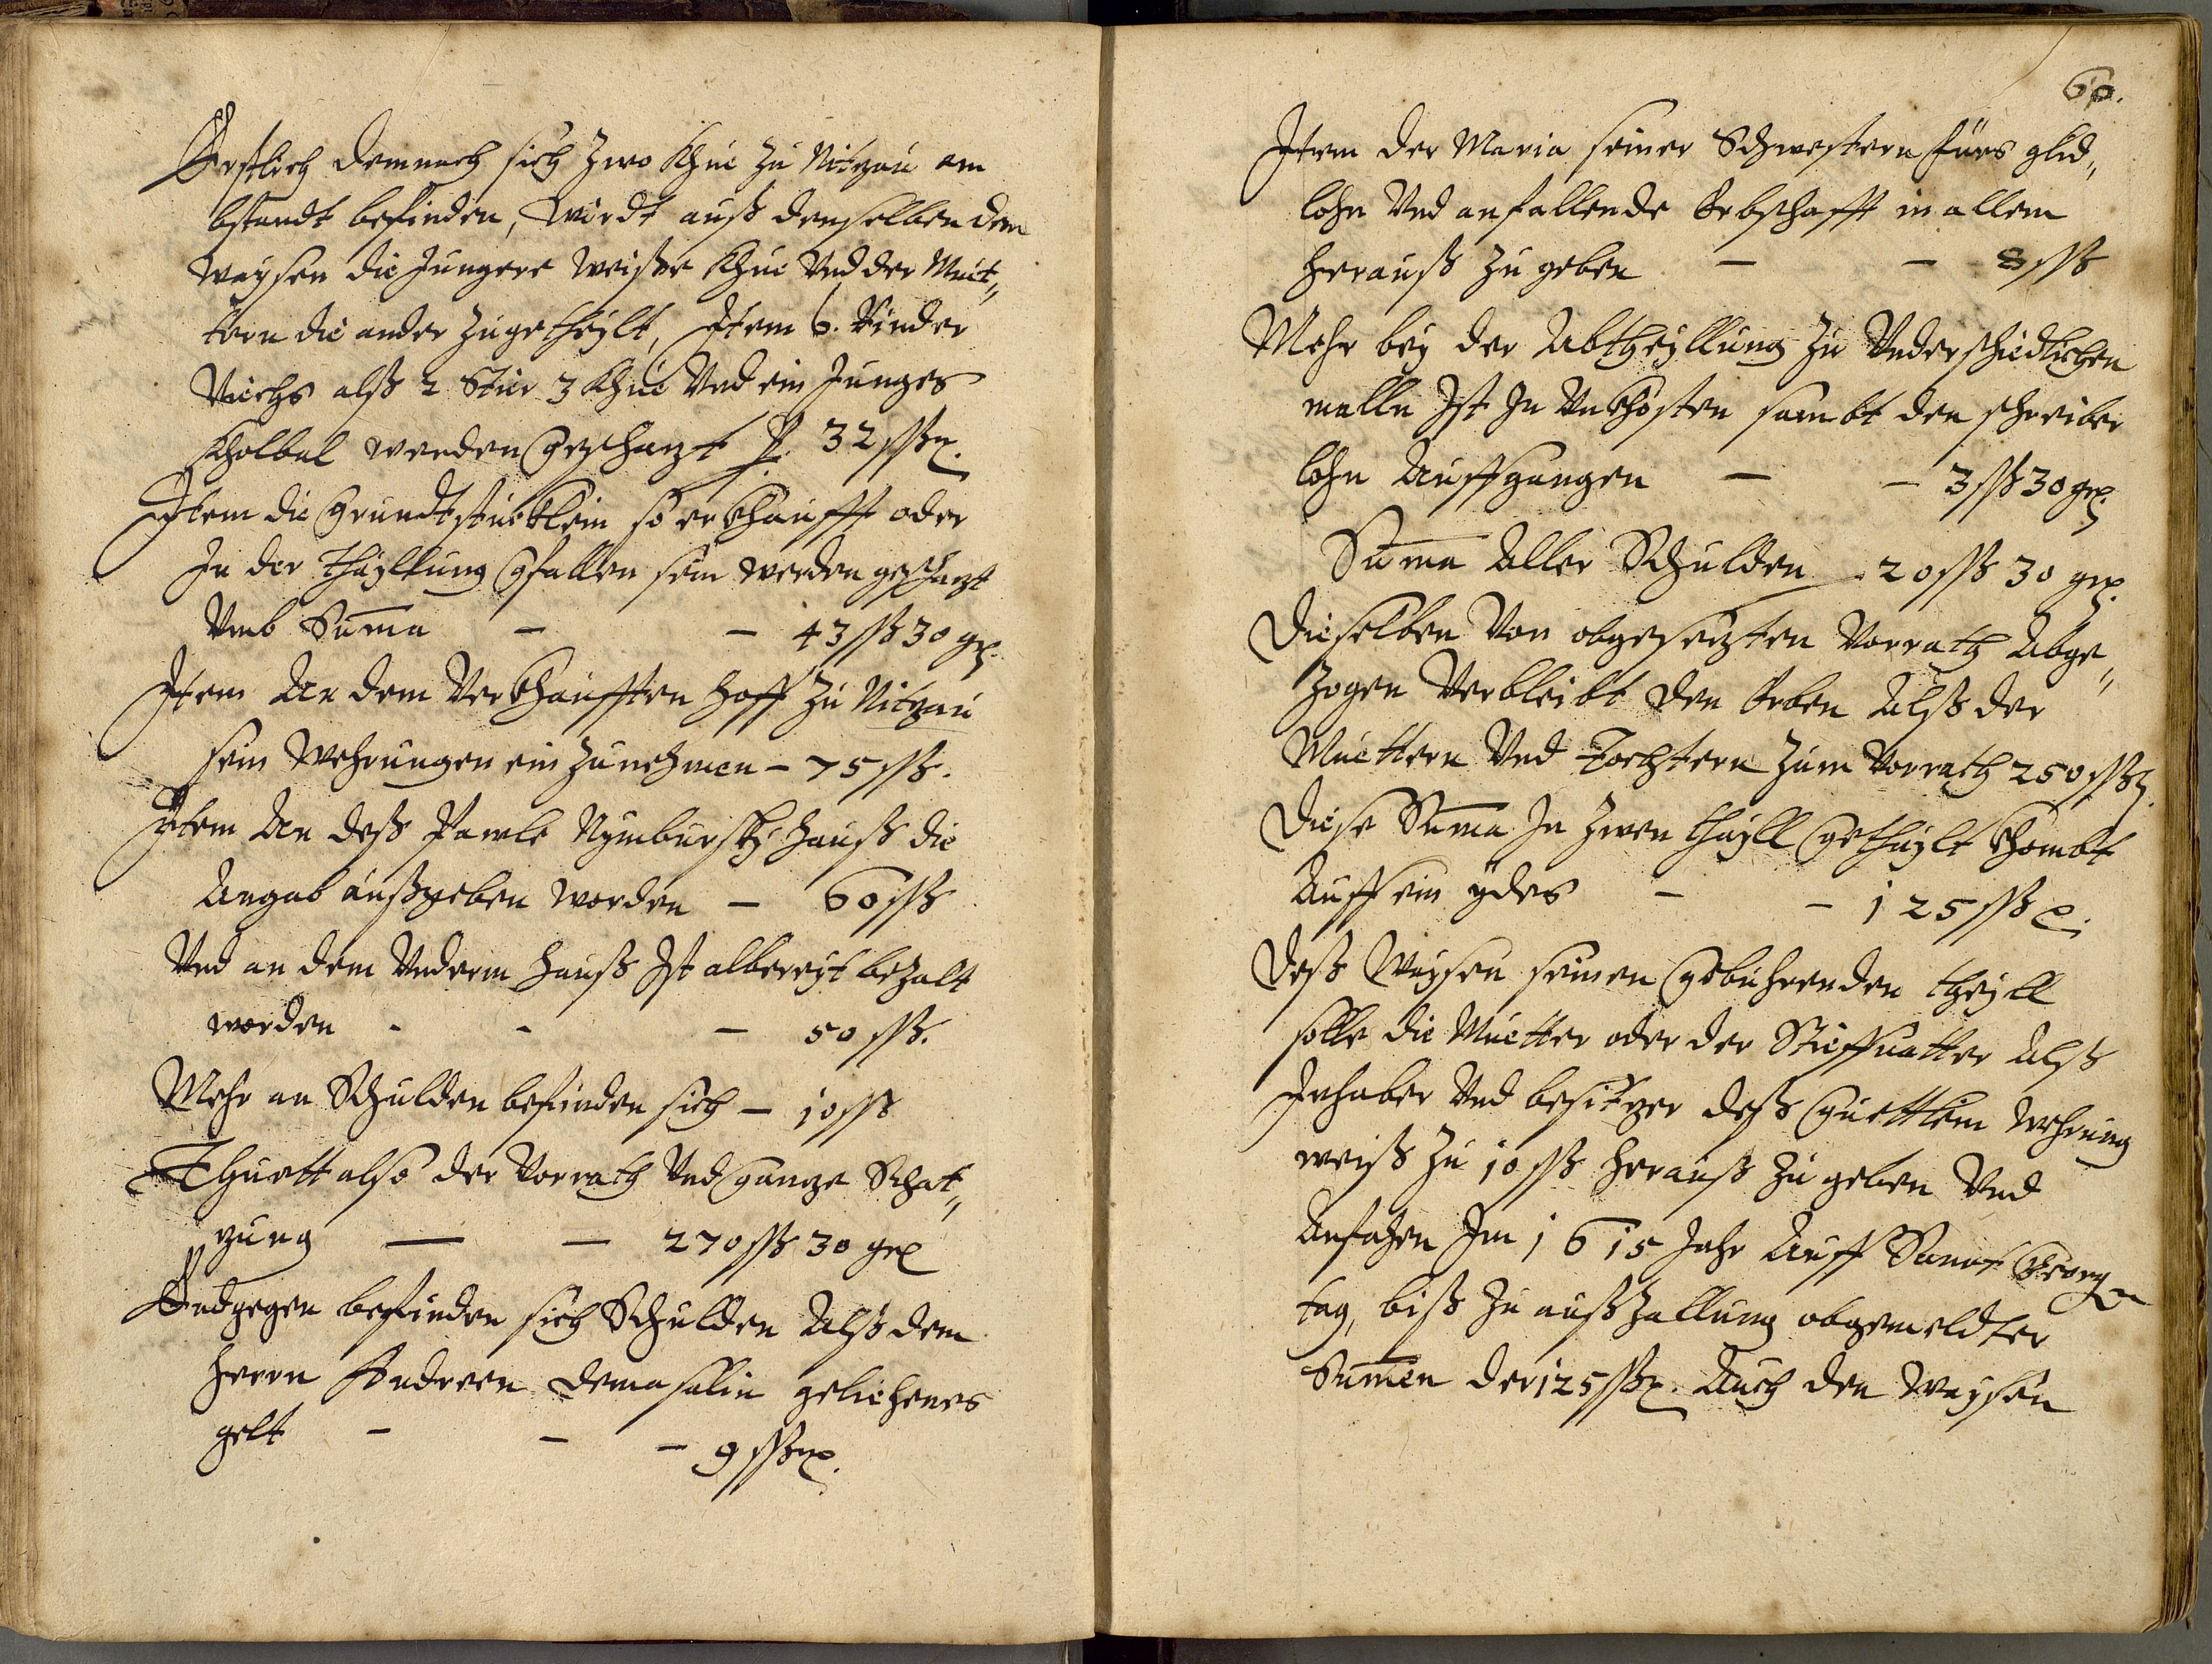 Erstlich demnach sich zwo Khüe zu Nitzau am
bstandt befinden, Wirdt auß denselben dem
Waysen die Jungere weisse Khue Vnd der Muet„
tern die ander zugetheylt, Item 6. Rinder
Viechs alß 2 Stier 3 Khüe Vnd ein Junges
Kholbal werden geschazt p. 32 ßß
Item die Grundtstuckhlein so erkhaufft oder
In der thayllung gfallen sein werden geschazt
Vmb Suma – – 43 ßß 30 gr
Item An dem Verkhaufften Hoff zu Nitzau
sein Wehrungen ein zunehmen – 75 ßß.
Item An deß Pawle Nymbursky Hauß die
Angab außgeben worden – 60 ßß
Vnd an dem Vnderm Hauß Ist albereyt bezalt
worden - - – 50 ßß.
Mehr an Schulden befinden sich – 10 ßß
Thuett also der Vorrath Vnd ganze Schat„
zung — — 270 ßß 30 gr
Endgegen befinden sich Schulden Alß dem
Herrn Andreen Demasalin gelichenes
gelt – – – 9 ßß
60.
Item der Maria seiner Schwestern fürs glid„
lohn Vnd anfallende Erbschafft in allem
herauß zu geben – – 8 ßß
Mehr bey der Abtheyllung zu Vnderschiedlichen
malln Ist In Vnkhosten sambt den schreiber
lohn Auffgangen – – 3 ßß 30 gr
Suma Aller Schulden – 20 ßß 30 gr
Dieselben Von obgesezten Vorrath Abge„
zogen Verbleibt den Erben Alß der
Muettern Vnd Tochtern zum Vorrath 250 ßß
Diese Suma In zwen thayll gethaylt khombt
Auff ein ydes – – 125 ßß
Deß Waysen seinen gebuhrenden theyll
solle die Muetter oder der Stieffuatter Alß
Inhaber Vnd besitzer deß Guettlein Wehrung
weiß zu 10 ßß herauß zu geben Vnd
Anfahen Im 1615 Jahr Auff Sanct Georgen
tag, biß zu außzallung obgemeldter
Sumen der 125 ßß. Auch den Waysen